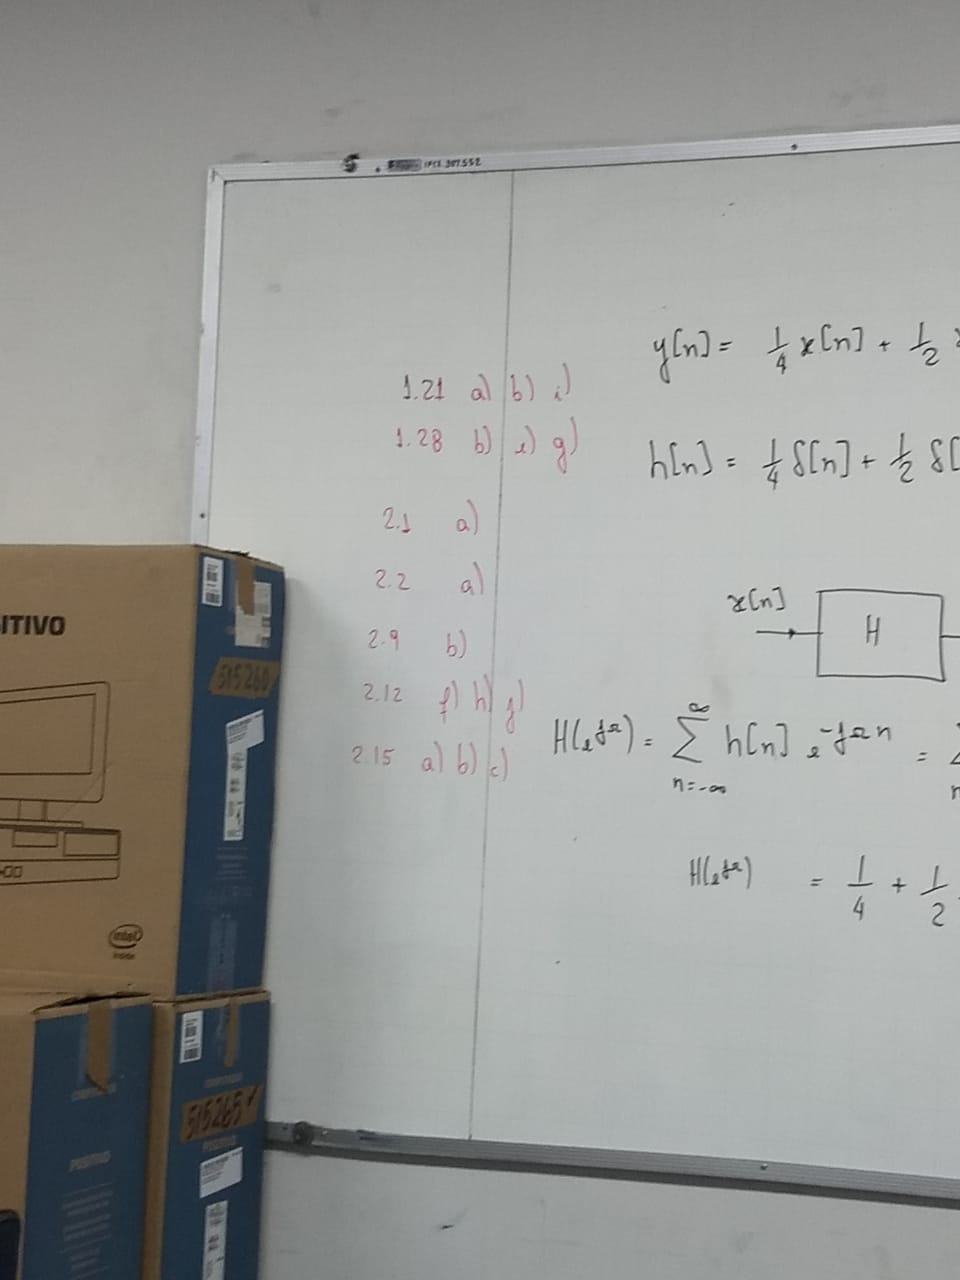 1.21 a) b) i)
1.28 b) e) g)
2.1 a)
2.2 a)
2.9 b)
2.12 f) h) j)
2.15 a) b) c)
y[n] = 1/4 x[n] + 1/2
h[n] = 1/4 δ[n] + 1/2 δ[
x[n]
H
H(e^jΩ) = ∑ n=-∞ ∞ h[n] e^-jΩn =
H(e^jΩ) = 1/4 + 1/2
ITIVO
515260
intel
inside
515265✓
POSITIVO